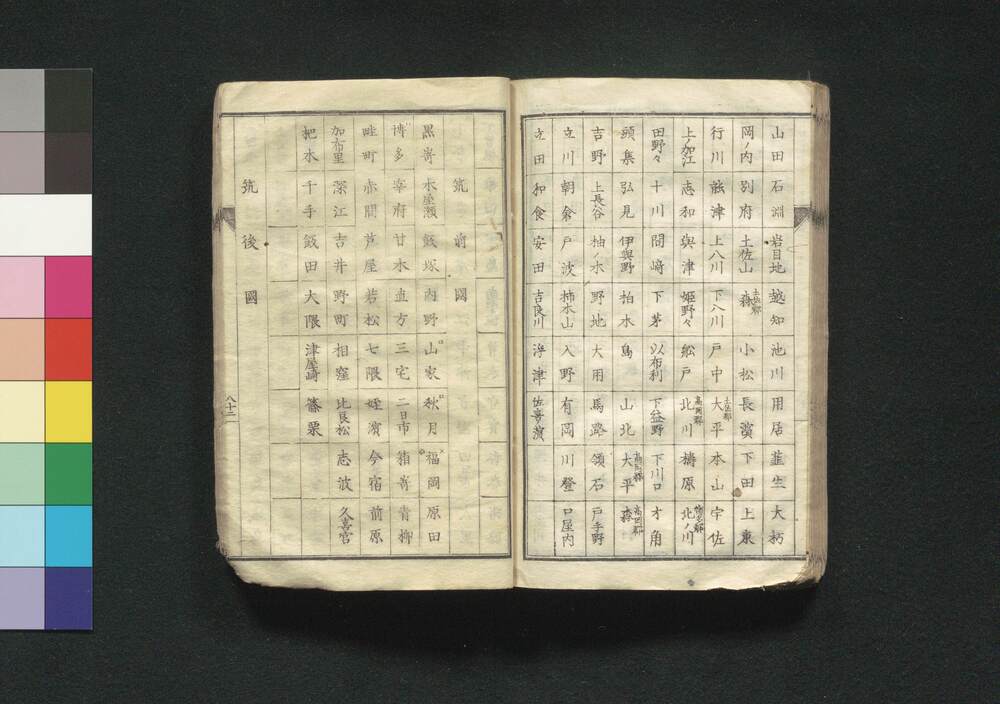 山田 石淵 岩目地 越知 池川 用居 韮生 大杤
岡ノ内 別府 土佐山 土佐郡 森 小松 長濱 下田 上東
行川 能津 上八川 下八川 戸中 土佐郡 大平 本山 宇佐
上ノ加江 志和 與津 姫野々 舩戸 高岡郡 北川 梼原 北ノ川
田野々 十川 間﨑 下茅 以布利 下益野 下川口 才角
頭集 弘見 伊與野 柏木 鳥 山北 高岡郡 大平 高岡郡 森
吉野 上長谷 柚ノ木 野地 大用 馬路 領石 戸手野
立川 朝倉 戸波 柿木山 入野 有岡 川登 口屋内
立田 和食 安田 吉良川 浮津 佐喜濱
筑前國
黒嵜 木屋瀬 飯塚 内野 山家 秋月 福岡 原田
博多 宰府 甘木 直方 三宅 二日市 箱嵜 青柳
畦町 赤間 芦屋 若松 七隈 姪濱 今宿 前原
加布里 深江 吉井 野町 相窪 比良松 志波 久喜宮
把木 千手 飯田 大隈 津屋崎 篠栗
筑後國
八十二